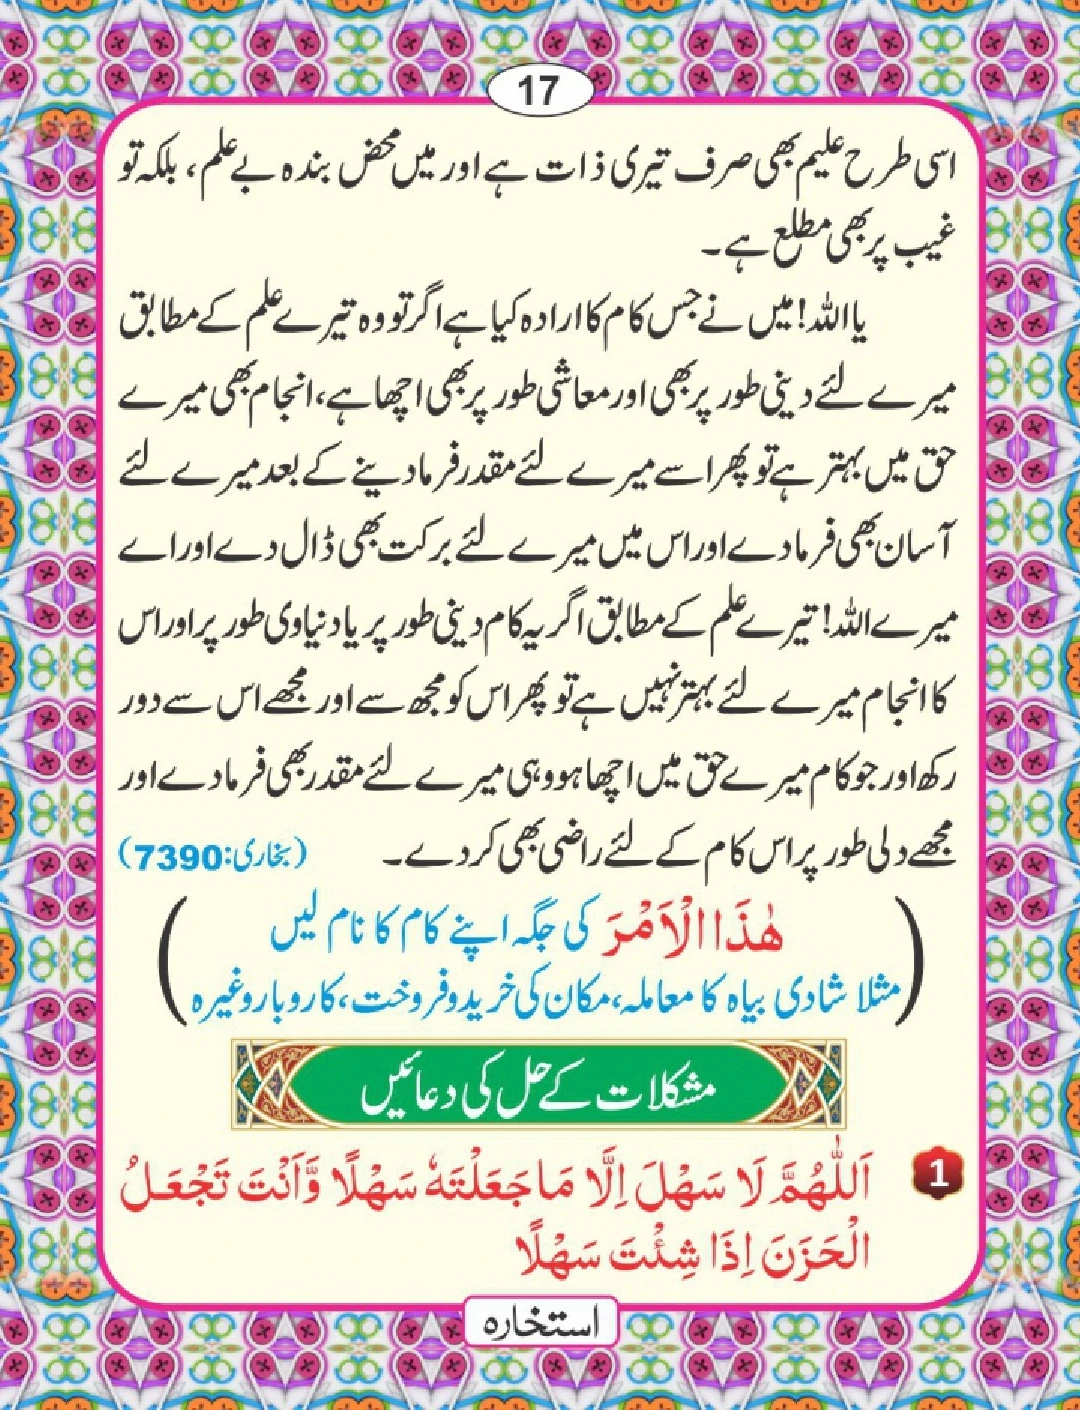 17
اسی طرح علیم بھی صرف تیری ذات ہے اور میں محض بندہ بے علم، بلکہ تو
غیب پر بھی مطلع ہے۔
یا اللہ! میں نے جس کام کا ارادہ کیا ہے اگر تو وہ تیرے علم کے مطابق
میرے لئے دینی طور پر بھی اور معاشی طور پر بھی اچھا ہے، انجام بھی میرے
حق میں بہتر ہے تو پھر اسے میرے لئے مقدر فرما دینے کے بعد میرے لئے
آسان بھی فرما دے اور اس میں میرے لئے برکت بھی ڈال دے اور اے
میرے اللہ! تیرے علم کے مطابق اگر یہ کام دینی طور پر یا دنیاوی طور پر اور اس
کا انجام میرے لئے بہتر نہیں ہے تو پھر اس کو مجھ سے اور مجھے اس سے دور
رکھ اور جو کام میرے حق میں اچھا ہو وہی میرے لئے مقدر بھی فرما دے اور
مجھے دلی طور پر اس کام کے لئے راضی بھی کر دے۔ (بخاری: 7390)
(هٰذَا الْاَمْرَ کی جگہ اپنے کام کا نام لیں
مثلا شادی بیاہ کا معاملہ، مکان کی خرید و فروخت، کاروبار وغیرہ)
مشکلات کے حل کی دعائیں
1 اَللّٰهُمَّ لَا سَهْلَ اِلَّا مَا جَعَلْتَهٗ سَهْلًا وَّاَنْتَ تَجْعَلُ
الْحَزَنَ اِذَا شِئْتَ سَهْلًا
استخارہ